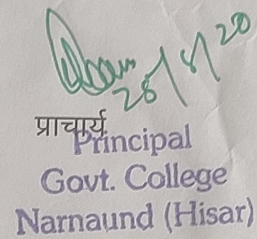 28/8/20
प्राचार्य
Principal
Govt. College
Narnaund (Hisar)